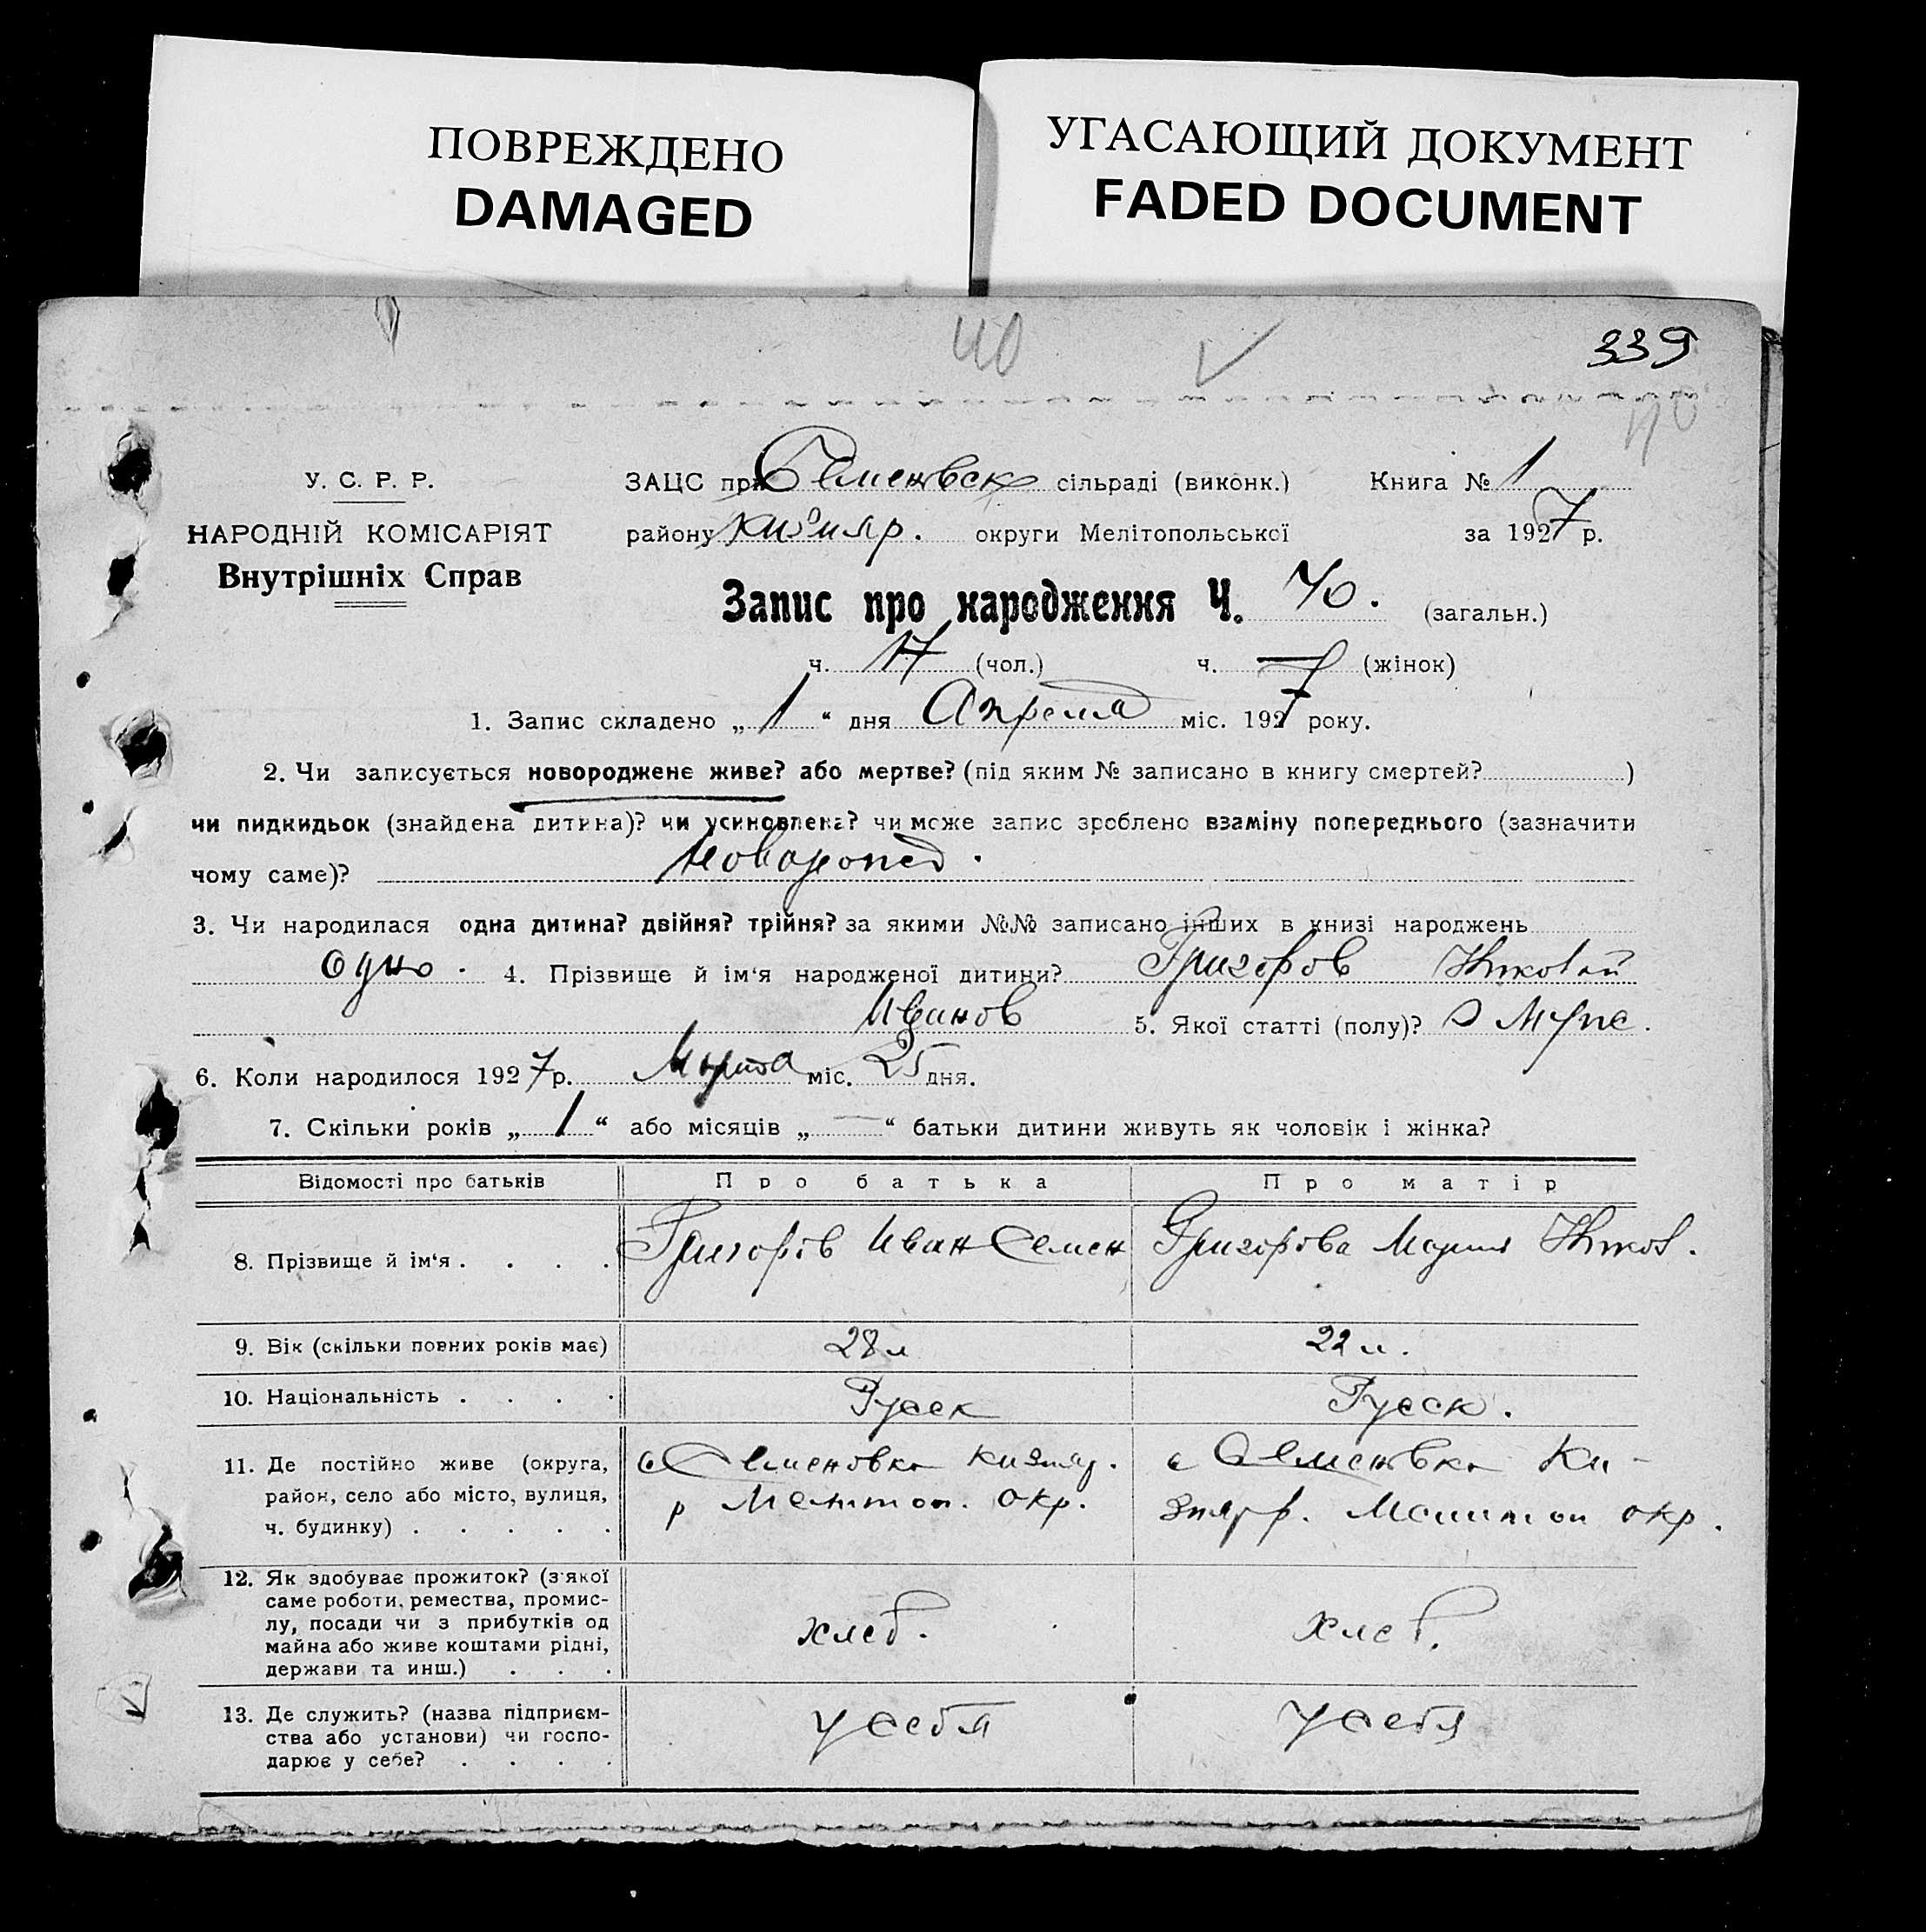 ПОВРЕЖДЕНО
DAMAGED
УГАСАЮЩИЙ ДОКУМЕНТ
FADED DOCUMENT
40 339
40
У. С. Р. Р.
НАРОДНІЙ КОМІСАРІЯТ
Внутрішніх Справ
ЗАЦС при Семеновск сільраді (виконк.) Книга № 1
району Кизияр. округи Мелітопольської за 1927 р.
Запис про народження Ч. 40. (загальн.)
ч. 17 (чол.) ч. (жінок)
1. Запис складено „ 1 “ дня Апреля міс. 1927 року.
2. Чи записується новороджене живе? або мертве? (під яким № записано в книгу смертей? )
чи пидкидьок (знайдена дитина)? чи усиновлена? чи може запис зроблено взаміну попереднього (зазначити
чому саме)?
3. Чи народилася одна дитина? двійня? трійня? за якими №№ записано інших в книзі народжень
одно. 4. Прізвище й ім‘я народженої дитини? Григоров Николай
Иванов 5. Якої статті (полу)? Муж.
6. Коли народилося 1927 р. Марта міс. 25 дня.
7. Скільки років „ 1 “ або місяців „ — “ батьки дитини живуть як чоловік і жінка?
Відомості про батьків Про батька Про матір
8. Прізвище й ім‘я . . . . Григоров Иван Семен Григорова Мария Никол.
9. Вік (скільки повних років має) 28 л 22 л.
10. Національність . . . . Русск Русск.
11. Де постійно живе (округа,
район, село або місто, вулиця,
ч. будинку) . . . . .
с Семеновка Кизияр.
р Мелитоп. окр.
с Семеновка Ки-
зияр р. Мелитоп окр.
12. Як здобуває прожиток? (з якої
саме роботи, ремества, промис-
лу, посади чи з прибутків од
майна або живе коштами рідні,
держави та инш.) . . .
хлеб. хлеб.
13. Де служить? (назва підприєм-
ства або установи) чи госпо-
дарює у себе? . . . .
у себя у себя